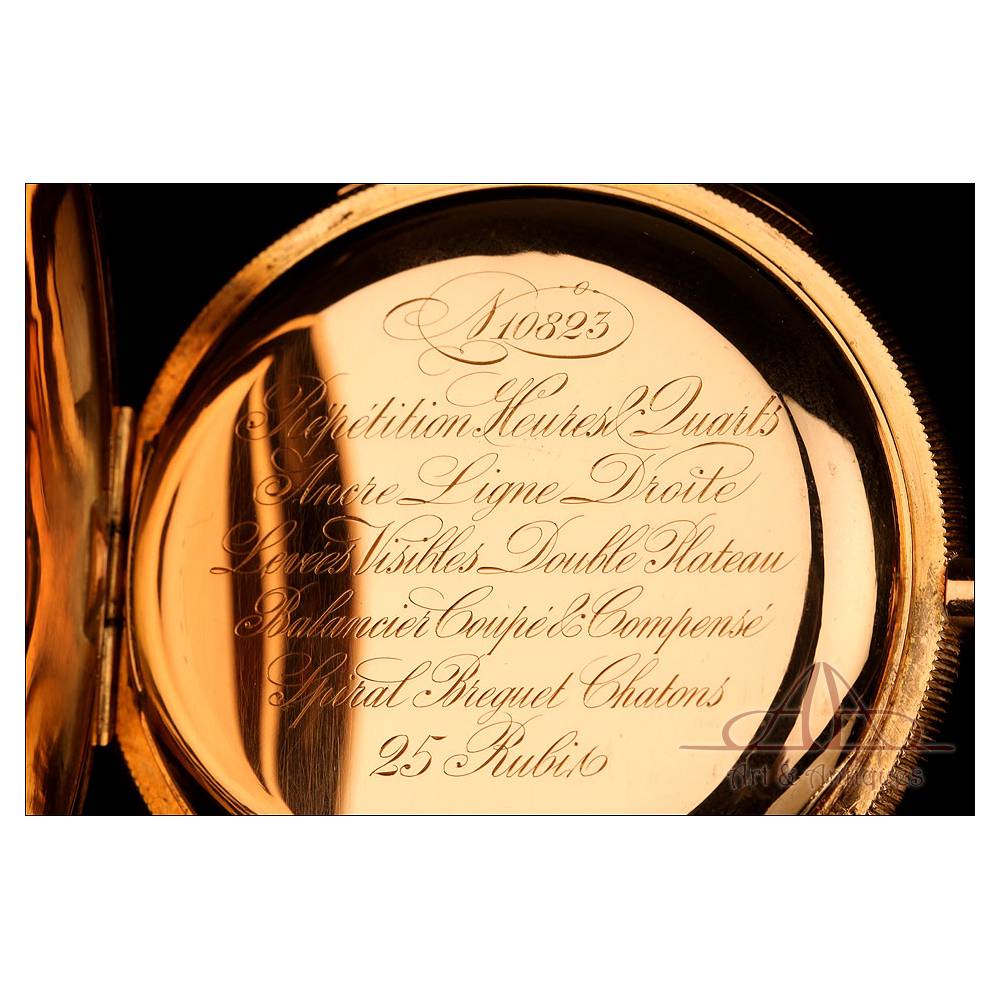 No 10823
Répétition Heures & Quarts
Ancre Ligne Droite
Levées Visibles Double Plateau
Balancier Coupé & Compensé
Spiral Breguet Chatons
25 Rubis
Art & Antiques